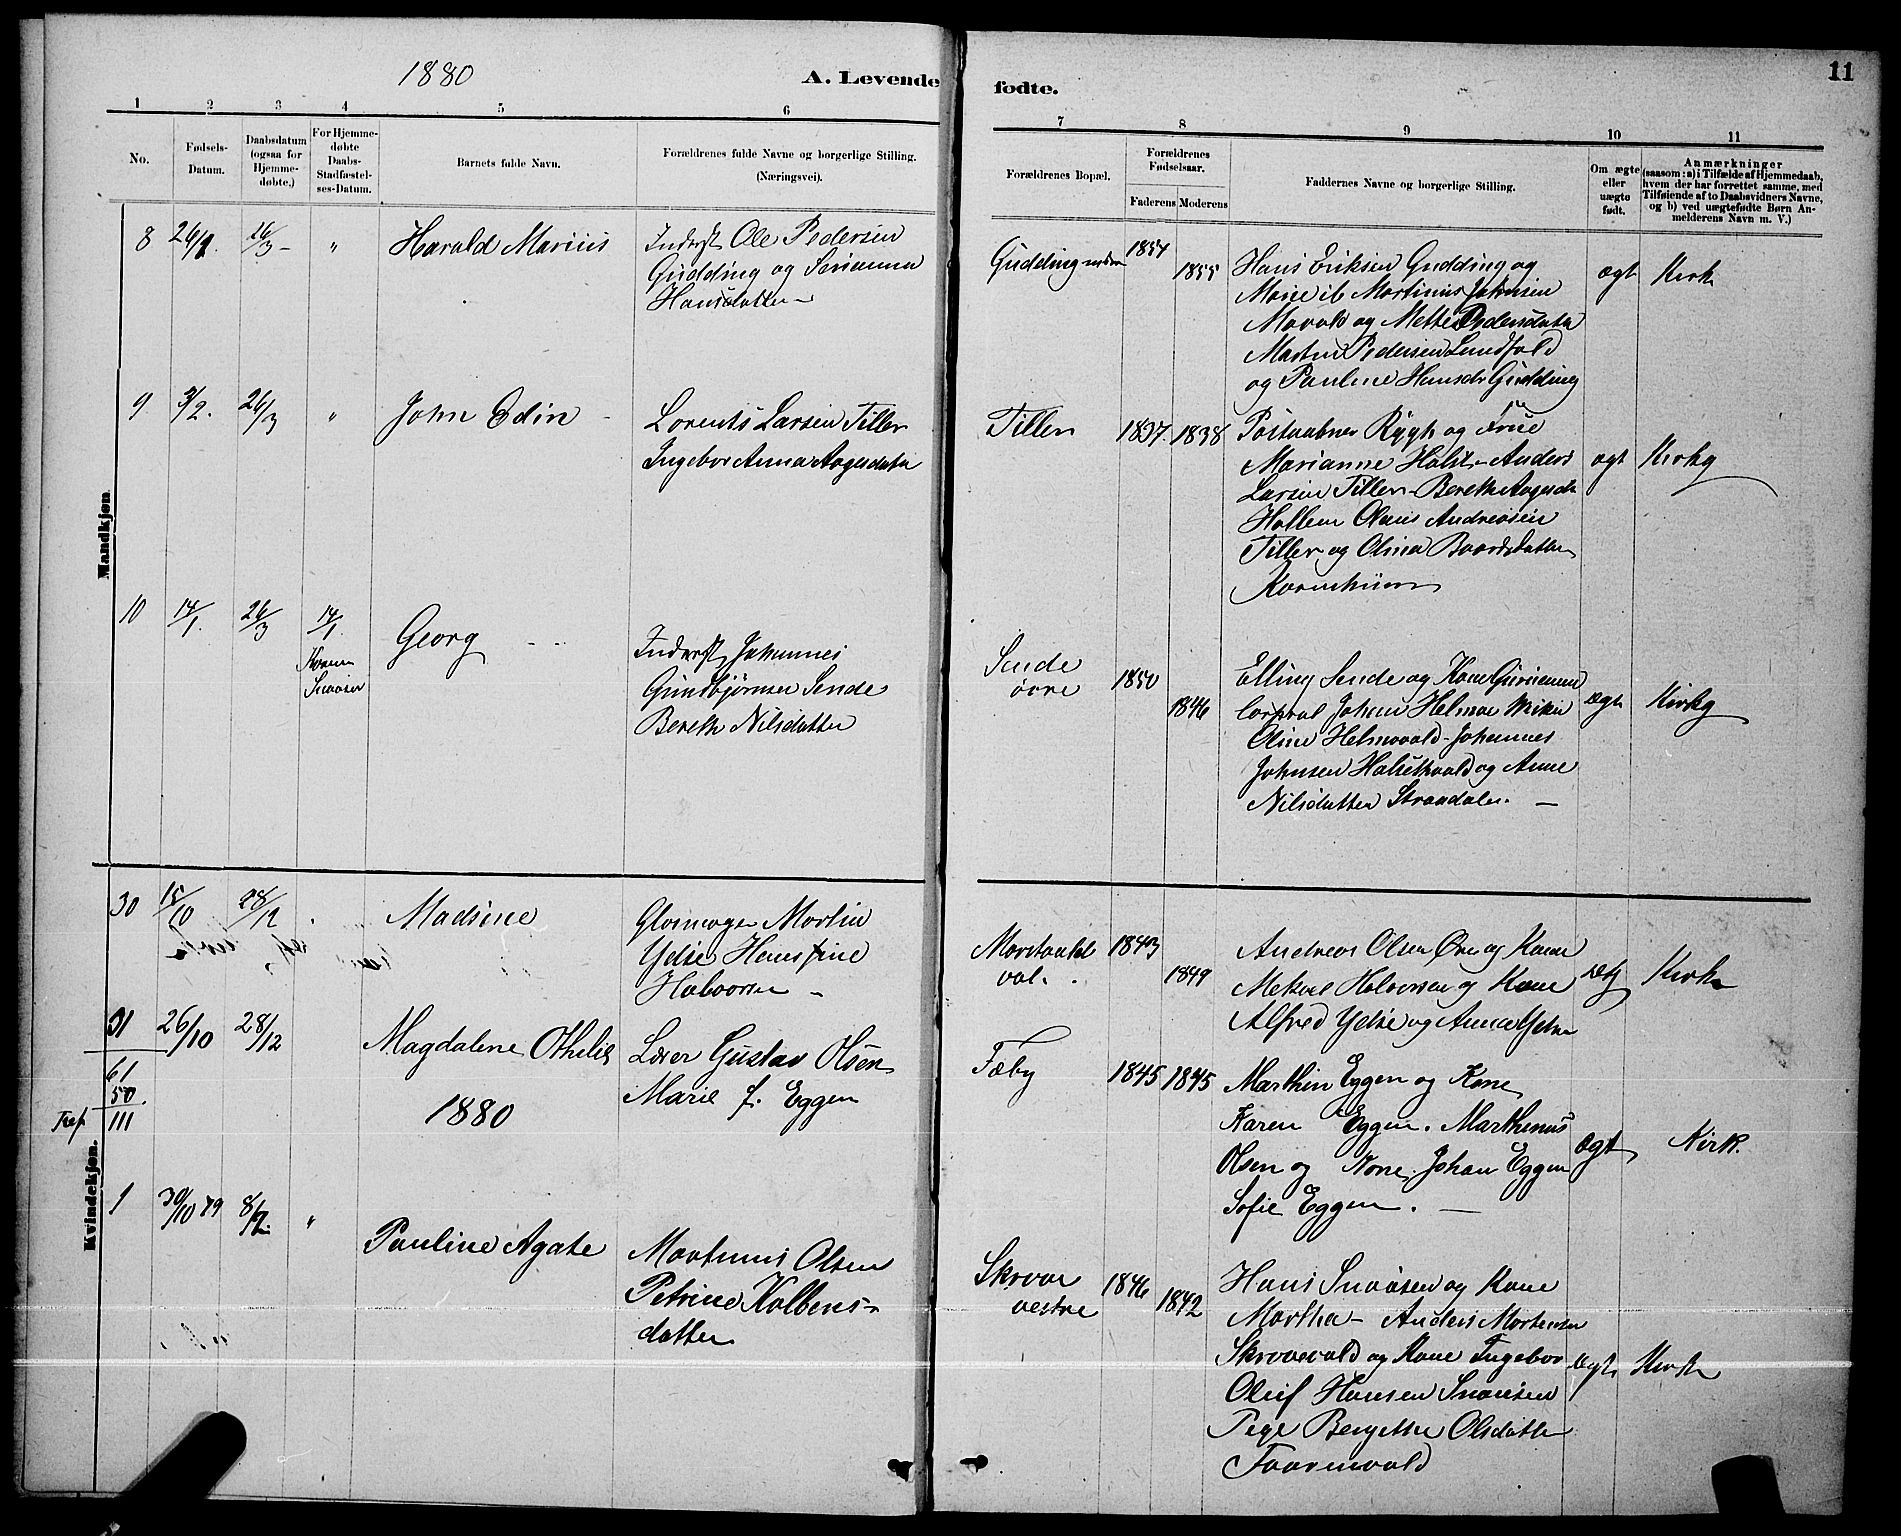 1880
A. Levende
fødte.
11
1 2 3 4 5 6
7 8 9 10 11
No.
Fødsels-
Datum.
Daabsdatum
(ogsaa for
Hjemme-
døbte.)
For Hjemme-
døbte
Daabs-
Stadfæstel-
ses-Datum.
Barnets fulde Navn.
Forældrenes fulde Navne og borgerlige Stilling.
(Næringsvei).
Forældrenes Bopæl.
Forældrenes
Fødselsaar.
Faderens Moderens
Faddernes Navne og borgerlige Stilling.
Om ægte
eller
uægte
født.
Anmærkninger
(saasom: a) i Tilfælde af Hjemmedaab,
hvem der har forrettet samme, med
Tilføiende af to Daabsvidners Navne,
og b) ved uægtefødte Børn An-
melderens Navn m. V.)
Mandkjøn.
8 26/1. 26/3 - " Harald Marius
Inderst Ole Pedersen
Gudding og
Hansdatter -
Gudding 1854 1855
Hans Eriksen Gudding og
Marie ib Martinus Johnsen
Mavald og Mette Pedersdatter
Martin Pedersen Lundfald
og Pauline Hansdr Gudding
ægt Kirk
9 3/2. 26/3 " John Edin -
Lorents Larsen Tiller
Ingebor Anna Aagesdatter
Tiller 1837. 1838
Postaabner Rygh og Frue
Marianne Holst - Anders
Larsen Tiller - Bereth Aagesdr
Hallem Olaus Andreasen
Tiller og Olina Baardsdatter
ægt Kirke
10 14/1. 26/3 14/1.
Snaasen
Georg - -
Inderst Johannes
Gundbjørnsen Sende
Bereth Nilsdatter
Sende
øvre 1850 1846
Elling Sende og Kone
Corpral Johan Helmoe
Oline Helmovald - Johannes
Johnsen Halsethvald og Anne
Nilsdatter Strandalen. -
Ægt Kirke
30 15/10 28/12 . Madsine
Martin
Ydse Hansine
Halvorsen -
1843 1849
Andreas Olsen Øra og Kone
Mekal Halvorsen og Kone
Alfred Ydse og Anna Ydse
ægt Kirke
31 26/10 28/12 Magdalene Othelie
Lærer Gustav Olsen
Marie f. Eggen
Fæby 1845 1845
Marthin Eggen og Kone
Karen Eggen. Marthinus
Olsen og Kone. Johan Eggen
Sofie Eggen. -
Ægt Kirk.
61
50
111
1880
Kvindekjøn.
1 30/10 79 8/2. " Pauline Agate
Martinus Olsen
Petrine Kolbens-
datter
Skrove
vestre 1846 1842
Hans Snaasen og Kone
Martha - Anders Mortensen
Skrovevald og Kone Ingebor
Oluf Hansen Snaasen
Pige Bergette Olsdatter
Faarenvald
Ægt Kirke